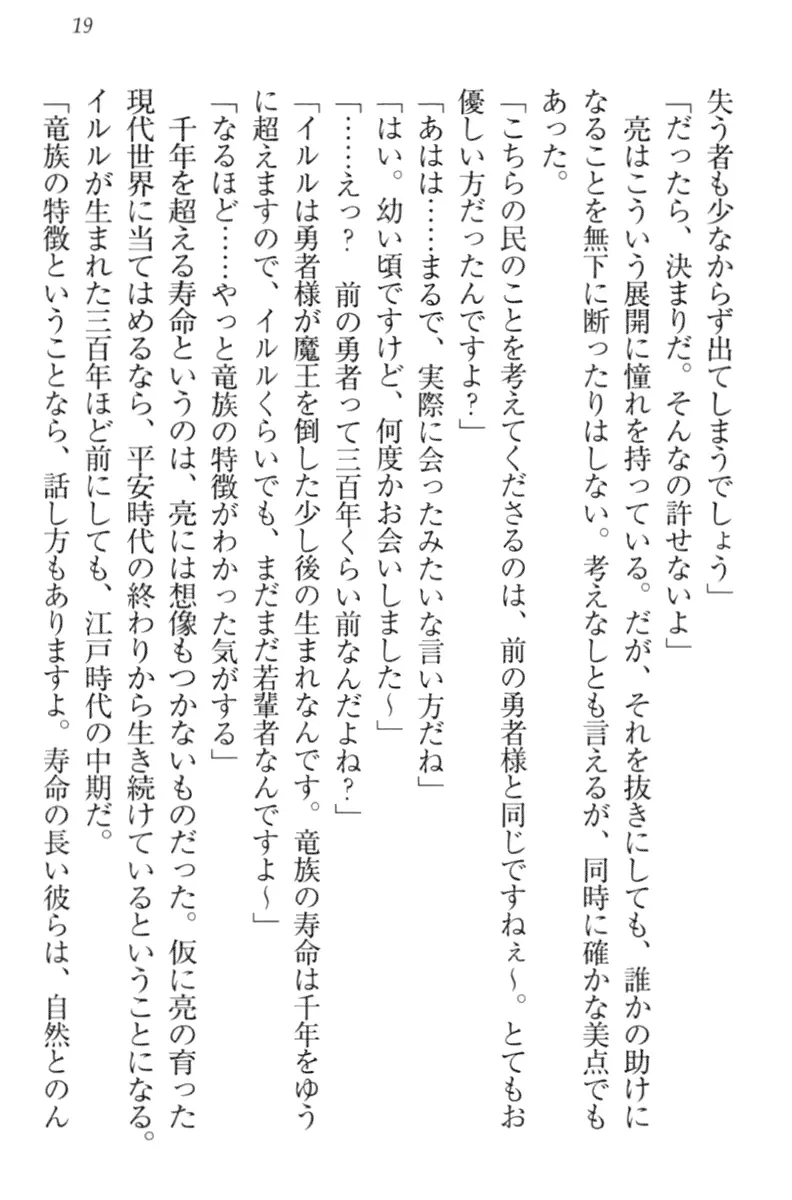 19
失う者も少なからず出てしまうでしょう」
「だったら、決まりだ。そんなの許せないよ」
亮はこういう展開に憧れを持っている。だが、それを抜きにしても、誰かの助けに
なることを無下に断ったりはしない。考えなしとも言えるが、同時に確かな美点でも
あった。
「こちらの民のことを考えてくださるのは、前の勇者様と同じですねぇ～。とてもお
優しい方だったんですよ？」
「あはは……まるで、実際に会ったみたいな言い方だね」
「はい。幼い頃ですけど、何度かお会いしました～」
「……えっ？　前の勇者って三百年くらい前なんだよね？」
「イルルは勇者様が魔王を倒した少し後の生まれなんです。竜族の寿命は千年をゆう
に超えますので、イルルくらいでも、まだまだ若輩者なんですよ～」
「なるほど……やっと竜族の特徴がわかった気がする」
千年を超える寿命というのは、亮には想像もつかないものだった。仮に亮の育った
現代世界に当てはめるなら、平安時代の終わりから生き続けているということになる。
イルルが生まれた三百年ほど前にしても、江戸時代の中期だ。
「竜族の特徴ということなら、話し方もありますよ。寿命の長い彼らは、自然とのん